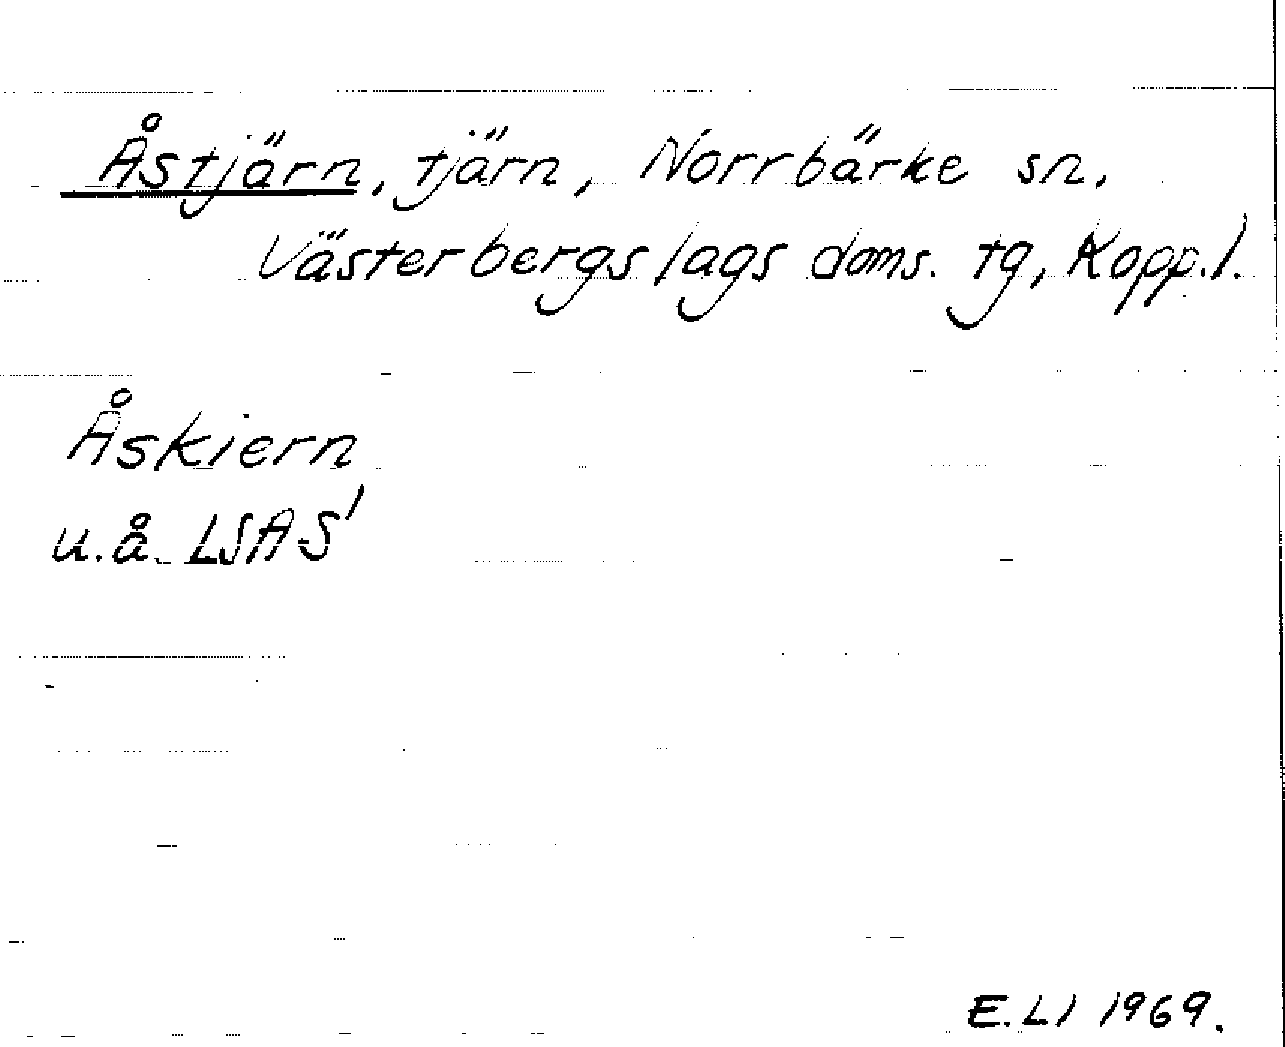 Åstjärn, tjärn, Norrbärke sn,
Västerbergslags doms. tg, Kopp. l.
Åskiern
u. å. LSAS'
E. LI 1969.